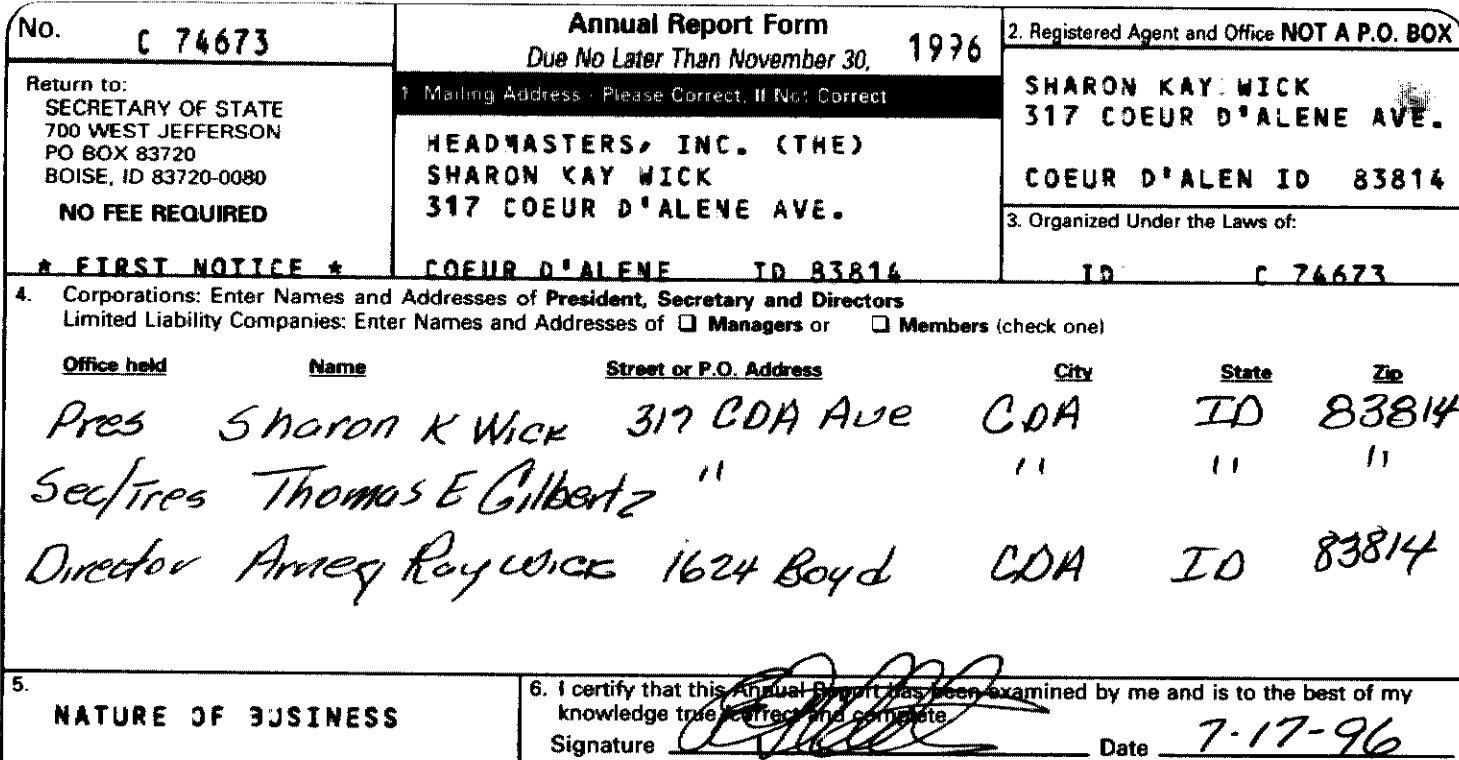 No. C 74673
Return to:
SECRETARY OF STATE
700 WEST JEFFERSON
PO BOX 83720
BOISE, ID 83720-0080
NO FEE REQUIRED
* FIRST NOTICE *
Annual Report Form
Due No Later Than November 30, 1996
1 Mailing Address - Please Correct, If Not Correct
HEADMASTERS, INC. (THE)
SHARON KAY WICK
317 COEUR D'ALENE AVE.
COEUR D'ALENE ID 83814
2. Registered Agent and Office NOT A P.O. BOX
SHARON KAY WICK
317 COEUR D'ALENE AVE.
COEUR D'ALEN ID 83814
3. Organized Under the Laws of:
ID C 74673
4. Corporations: Enter Names and Addresses of President, Secretary and Directors
Limited Liability Companies: Enter Names and Addresses of ❑ Managers or ❑ Members (check one)
Office held Name Street or P.O. Address City State Zip
Pres Sharon K Wick 317 CDA Ave CDA ID 83814
Sec/Tres Thomas E Gilbertz " " " "
Director Ray Wick 1624 Boyd CDA ID 83814
5.
NATURE OF BUSINESS
6. I certify that this Annual Report has been examined by me and is to the best of my
knowledge true correct and complete
Signature Date 7-17-96